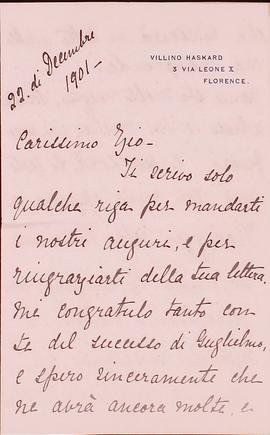 22 di Decembre
1901-
VILLINO HASKARD
3 VIA LEONE X
FLORENCE.
Carissimo Ezio-
Ti scrivo solo
qualche riga per mandarti
i nostri auguri, e per
ringraziarti della tua lettera.
Me congratulo tanto con
te del successo di Guglielmo,
e spero sinceramente che
ne abrà ancora molte, e